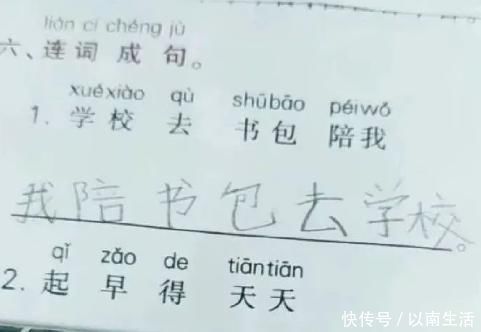 lián cí chéng jù
六、连词成句。
xuéxiào qù shūbāo péiwǒ
1. 学校 去 书包 陪我
我陪书包去学校。
qǐ zǎo de tiāntiān
2. 起 早 得 天天
快传号/以南生活